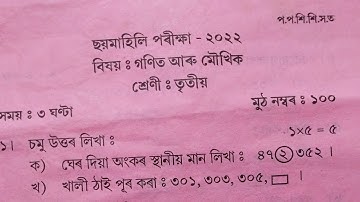 প.প.শি.শি.স.ত
ছয়মাহিলি পৰীক্ষা - ২০২২
বিষয় : গণিত আৰু মৌখিক
শ্ৰেণী : তৃতীয়
সময় : ৩ ঘণ্টা মুঠ নম্বৰ : ১০০
১। চমু উত্তৰ লিখা : ১×৫ = ৫
ক) ঘেৰ দিয়া অংকৰ স্থানীয় মান লিখা : ৪৭২৩৫২ ।
খ) খালী ঠাই পূৰ কৰা : ৩০১, ৩০৩, ৩০৫, □ ।